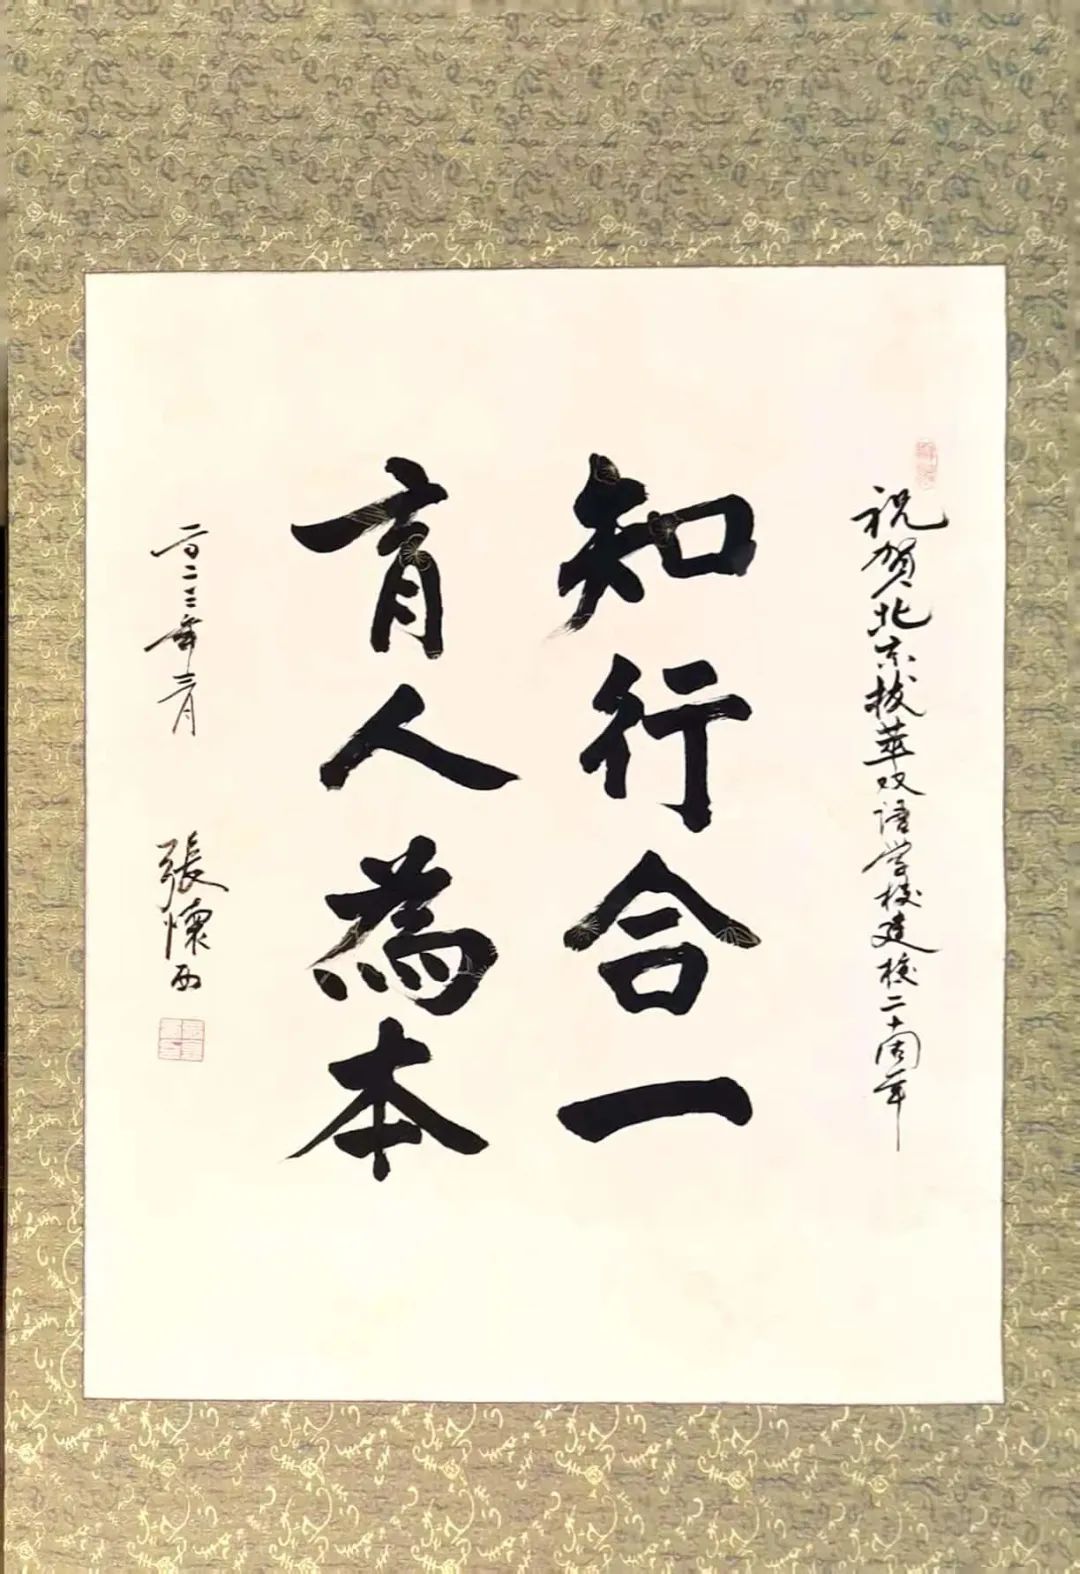 祝贺北京拔萃双语学校建校二十周年
知行合一
育人為本
二〇二三年三月
張懷西